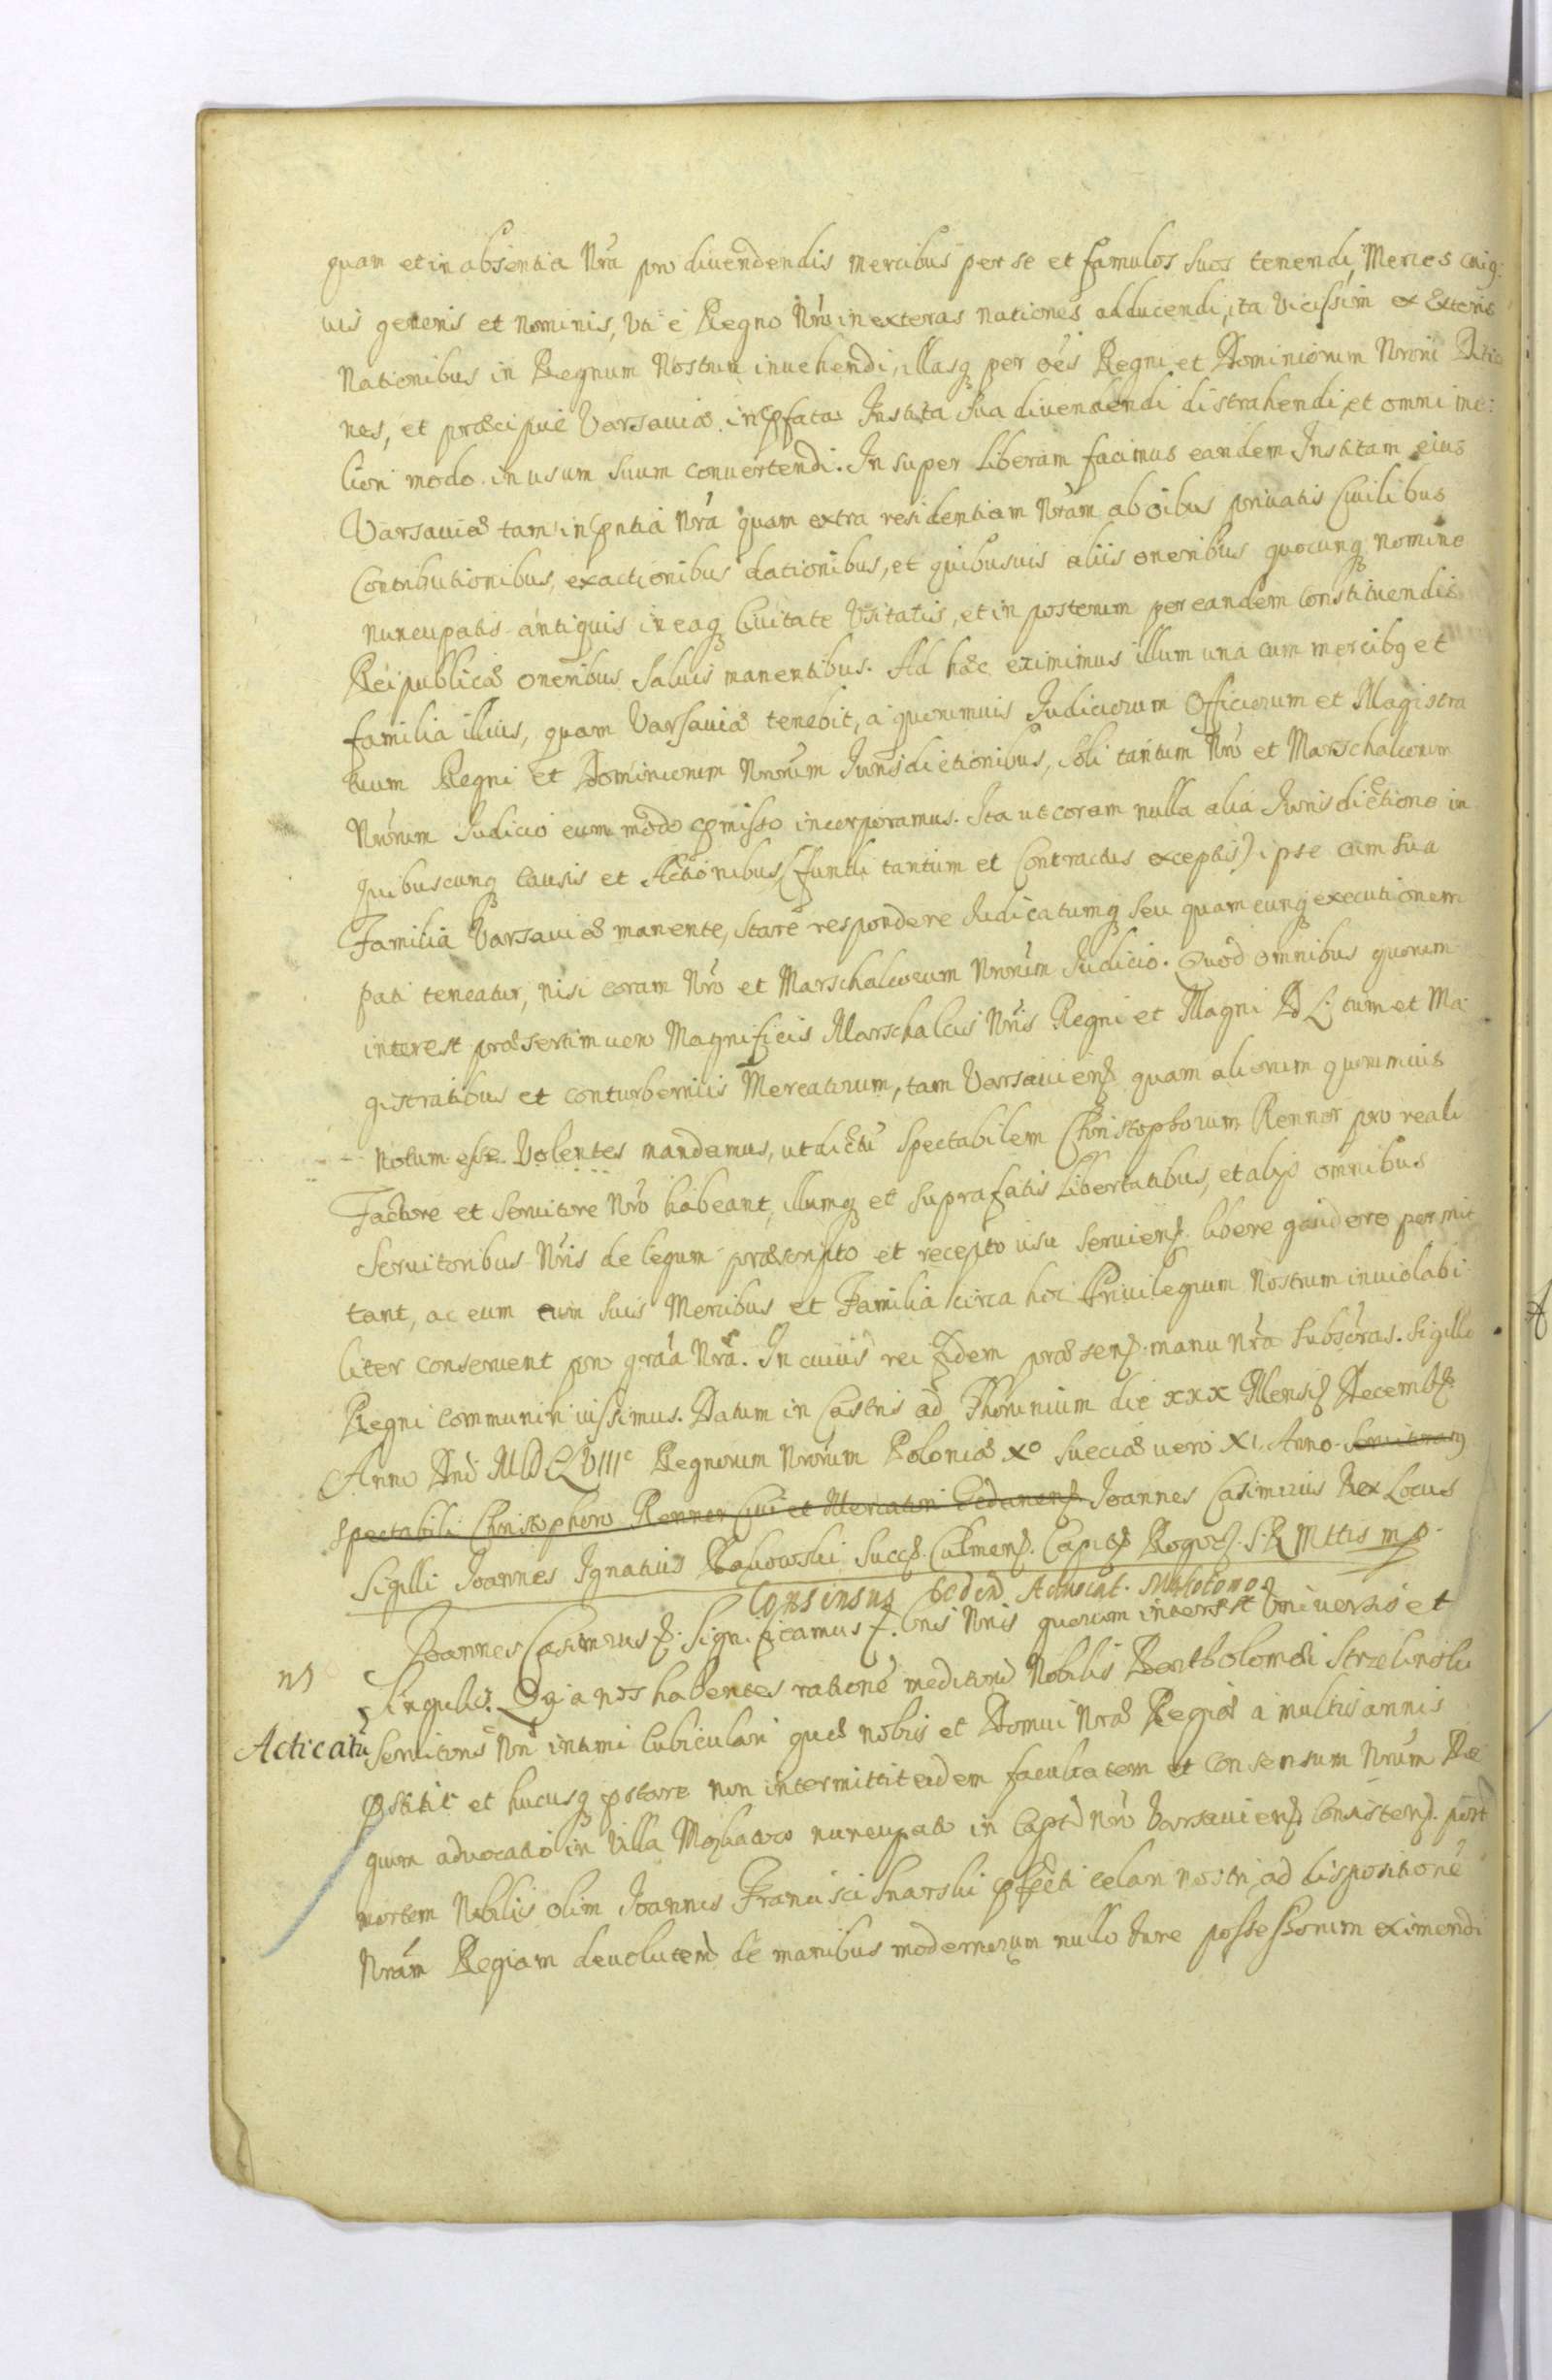 quam et in absentia Nrã pro diuendendis mercibus per se et famulos suos tenendi, Merces cuiq:
uis generis et Nominis, Uti è Regno Nrõ in exteras nationes adducendi, ita vicissim ex Exteris
Nationibus in Regnum Nostrum inuehendi, illasq per oẽs Regni et Dominiorum Nrorũ Ditio
nes, et præcipuè Varsauiæ in pfata Instita sua diuendendi distrahendi, et omni me:
liori modo in usum suum conuertendi. Insuper liberam facimus eandem Institam eius
Varsauiæ tam in pntiã Nrã quam extra residentiam Nrãm ab oĩbus priuatis Ciuilibus
Contributionibus, exactionibus dationibus, et quibusuis aliis oneribus quocunq nomine
nuncupatis antiquis in eaq Ciuitate Usitatis, et in posterum per eandem constituendis
Reipublicæ oneribus saluis manentibus. Ad hæc eximimus illum unà cum mercibq et
familia illius, quam Varsauiæ tenebit, a quorumuis Judiciorum Officiorum et Magistra
tuum Regni et Dominiorum Nrorũm Jurisdictionibus, soli tantum Nrõ et Marschalcorum
Nrõrum Judicio eum modo pmisso incorporamus. Ita ut coram nulla alia Jurisdictione in
quibuscunq causis et Actionibus (fundi tantum et Contractus exceptis) ipse cum sua
Familia Varsauiæ manente, stare respondere Judicatumq seu quamcunq executionem
pati teneatur, nisi coram Nrõ et Marschalcorum Nrorũm Judicio. Quod omnibus quorum
interest præsertim uero Magnificis Marschalcis Nrĩs Regni et Magni D. L. tum et Ma
gistratibus et conturberniis Mercatorum, tam Varsauiens quam aliorum quorumuis
notum esse Volentes mandamus, ut dictũ Spectabilem Christophorum Renner pro reali
Factore et Seruitore Nrõ habeant, illumq et suprafatis libertatibus, et alijs omnibus
Seruitoribus Nrĩs de legum præscripto et recepto usu seruiens libere gaudere permit
tant, ac eum cum suis Mercibus et Familia circa hoc Priuilegium Nostrum inuiolabi
liter conseruent pro grãa Nrã. In cuius rei fidem præsens manu Nrã subscras. Sigillo
Regni communiri iussimus. Datum in Castris ad Thorunium die XXX Mensis Decembs
Anno Dnĩ MDCLVIII Regnorum Nrorũm Poloniæ Xº Sueciæ uero XI Anno
Spectabili Christophoro Renner Ciui et Mercatori Gedanens Joannes Casimirus Rex Locus
Sigilli Joannes Ignatius Bakowski Succ. Culmens. Capits S. R. Mttis mp.
Consensus Advocat.
Joannes Casimirus Significamus quorum interest Universis et
n)
Singulis. Quia nos habentes rationẽ meritorũ Nobilis Bartholomæi Strzelinski
Acticatũ
Seruitoris Nrĩ intimi Cubicularij quæ nobis et Domui Nræ Regiæ a multis annis
pstitit et hucusq pstare non intermittit eidem facultatem et consensum Nrũm
quum advocatiõ in Villa nuncupata in Captũ Nrõ Varsauiens Consistens post
mortem Nobilis olim Joannis Francisci Snarski pfecti celari nostri ad dispositionẽ
Nrãm Regiam deuolutem de manibus modernorum nullo Jure possessorum eximendi